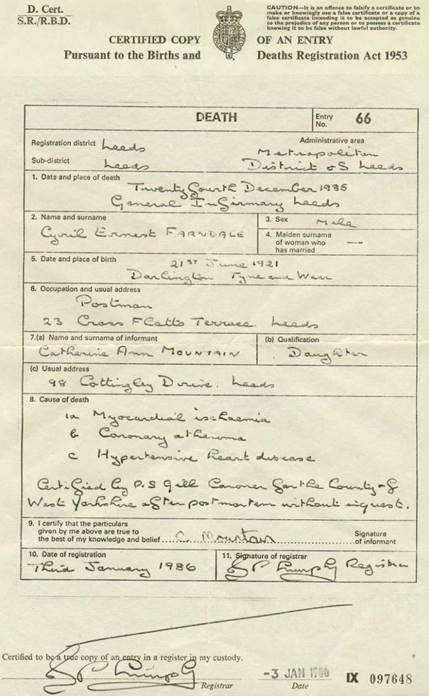 D. Cert.
S.R./R.B.D.
CAUTION—It is an offence to falsify a certificate or to
make or knowingly use a false certificate or a copy of a
false certificate intending it to be accepted as genuine
to the prejudice of any person or to possess a certificate
knowing it to be false without lawful authority.
CERTIFIED COPY OF AN ENTRY
Pursuant to the Births and Deaths Registration Act 1953
DEATH
Entry No. 66
Registration district Leeds
Administrative area
Sub-district Leeds
Metropolitan District of Leeds
1. Date and place of death
Twenty Fourth December 1985
General Infirmary Leeds
2. Name and surname
Cyril Ernest FARNDALE
3. Sex Male
4. Maiden surname of woman who has married —
5. Date and place of birth
21st June 1921
Darlington Tyne and Wear
6. Occupation and usual address
Postman
23 Cross Flatts Terrace Leeds
7.(a) Name and surname of informant
Catherine Ann MOUNTAIN
(b) Qualification
Daughter
(c) Usual address
98 Cottingley Drive. Leeds
8. Cause of death
1a Myocardial ischaemia
b Coronary atheroma
c Hypertensive heart disease
Certified by P.S Gill Coroner for the County of
West Yorkshire after postmortem without inquest.
9. I certify that the particulars
given by me above are true to
the best of my knowledge and belief C. Mountain
Signature
of informant
10. Date of registration
Third January 1986
11. Signature of registrar
Registrar
Certified to be a true copy of an entry in a register in my custody.
Registrar
-3 JAN 1986
Date
IX 097648